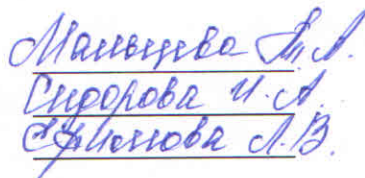 Мальцева Т.А.
Сидорова И.А.
Ефимова Л.В.